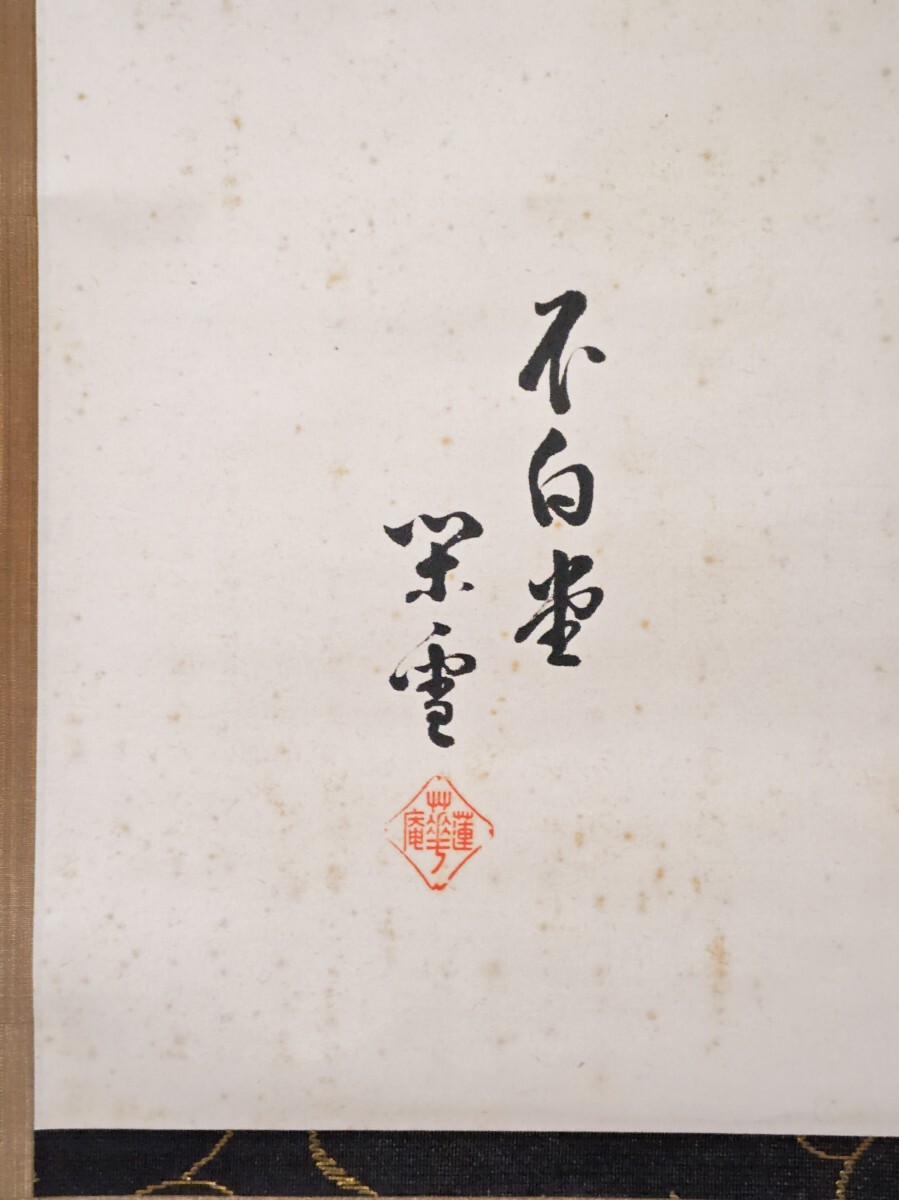 不白堂
閑雪
蓮華庵